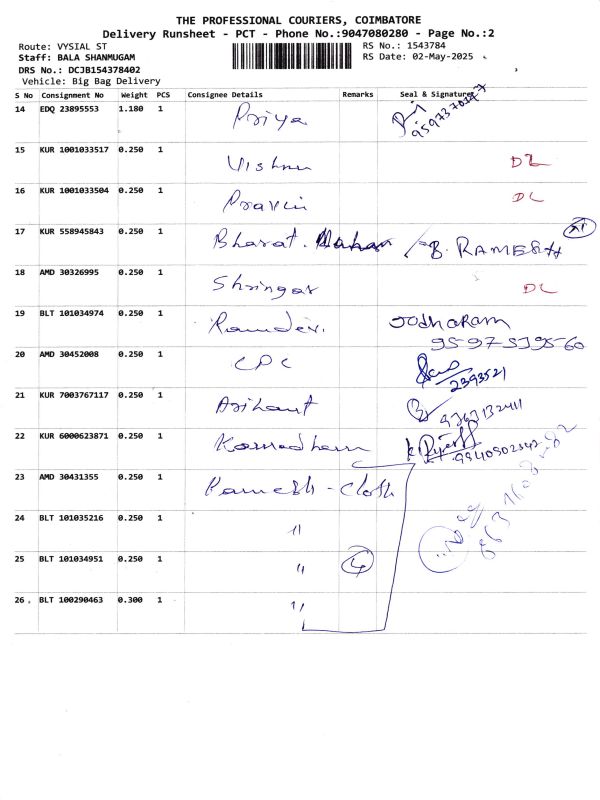 THE PROFESSIONAL COURIERS, COIMBATORE
Delivery Runsheet - PCT - Phone No.:9047080280 - Page No.:2
Route: VYSIAL ST
RS No.: 1543784
Staff: BALA SHANMUGAM
RS Date: 02-May-2025
DRS No.: DCJB154378402
Vehicle: Big Bag Delivery
S No Consignment No Weight PCS Consignee Details Remarks Seal & Signature
14 EDQ 23895553 1.180 1 Priya
15 KUR 1001033517 0.250 1 Vishnu DL
16 KUR 1001033504 0.250 1 Pravin DL
17 KUR 558945843 0.250 1 Bharat. B. RAMESH
18 AMD 30326995 0.250 1 Shringar DL
19 BLT 101034974 0.250 1 Ramdev. Jodharam
95-97 5395-60
20 AMD 30452008 0.250 1 CPC 2393521
21 KUR 7003767117 0.250 1 Arihant 9363132411
22 KUR 6000623871 0.250 1
23 AMD 30431355 0.250 1 Ramesh - Cloth
24 BLT 101035216 0.250 1 "
25 BLT 101034951 0.250 1 " 4
26 BLT 100290463 0.300 1 "